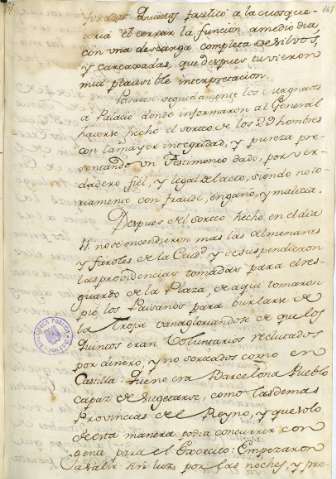 Quintos facilitó à la mosque-
tería el cerrar la funcion a medio dia
con una descarga completa de silvos,
y carcaxadas, que despues tuvieron
mui plausible interpretacion.
Pasaron seguidamente los Cirujanos
a Palacio donde informaron al General
haverse hecho el sorteo de los 99 hombres
con la mayor integridad, y pureza pre-
sentando un Testimonio dado, por ver-
dadero fiel, y legal de la cera, siendo noto-
riamente con fraude, engaño, y malicia.
Despues del sorteo hecho, en el dia
11. no se encendieron mas las Almenaras
y faroles de la Ciud.d y se suspendieron
las providencias tomadas para el res-
guardo de la Plaza de aqui tomaron
pié los Paisanos para burlarse de
la Tropa vanagloriandose de que los
Quintos eran Voluntarios reclutados
por dinero, y no sorteados como en
Castilla: Que no era Barcelona Pueblo
capaz de sugetarse, como las demas
Provincias de el Reyno, y que solo
de esta manera podia concurrer con
gente para el Exercito: Empezaron
a salir sin luz por las noches, y pro-